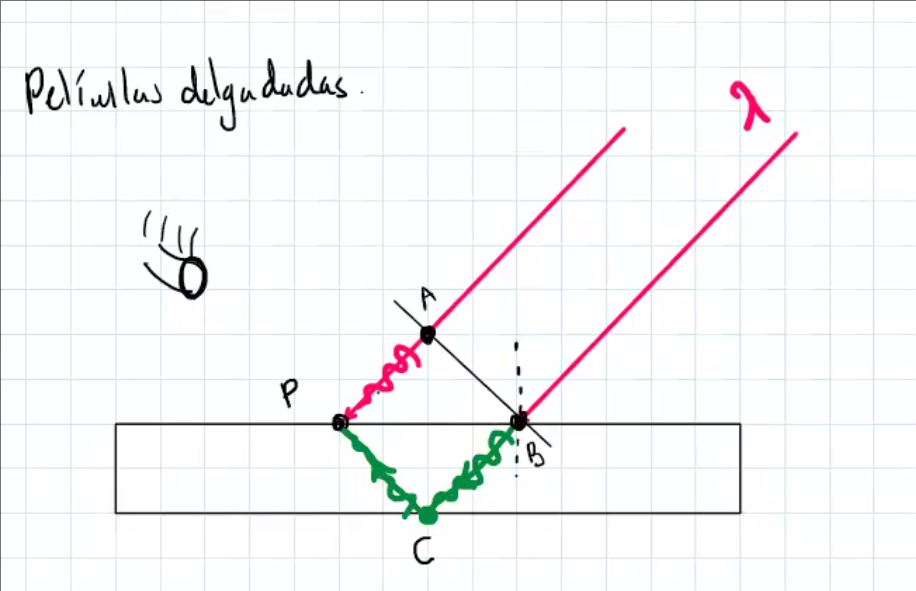 Películas delgadadas.
λ
A
P
B
C